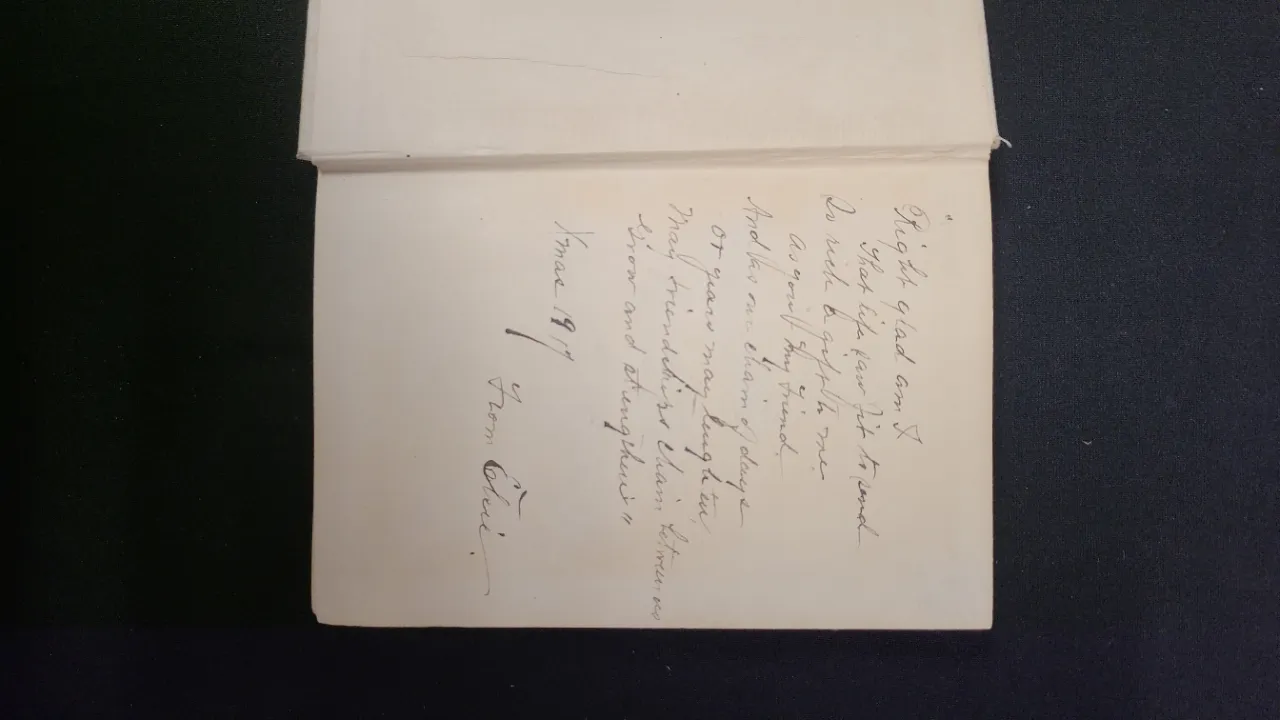 "Right glad am I
That life saw fit to send
So rich a gift to me
As you my friend
And as our chain of days
or years may lengthen
May friendships chain between us
Grow and strengthen"
Xmas 1917
From